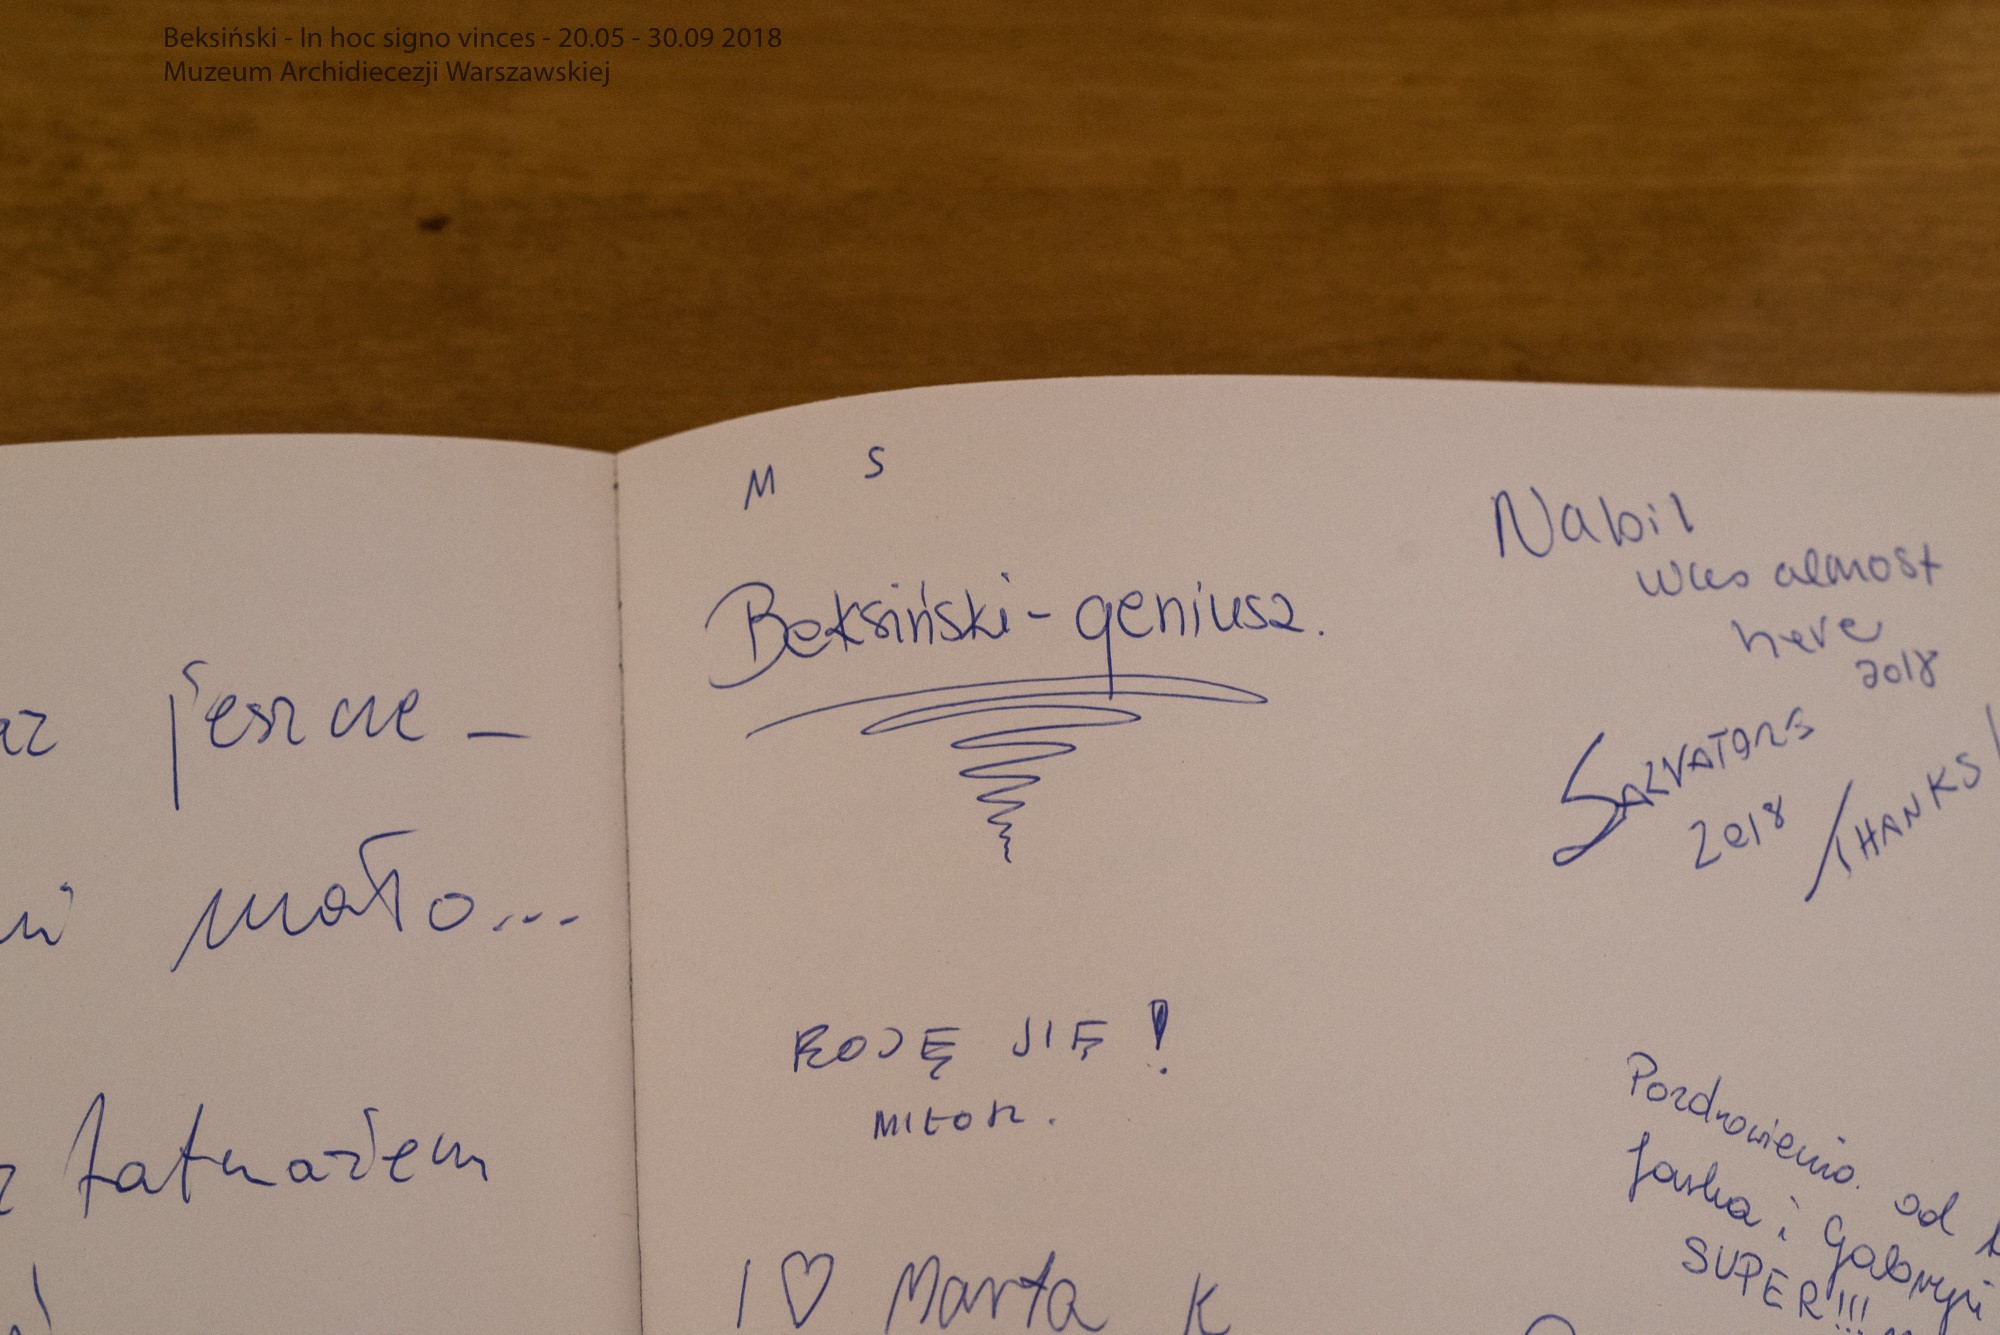 Beksiński - In hoc signo vinces - 20.05 - 30.09 2018
Muzeum Archidiecezji Warszawskiej
jeszcze –
mało...
M S
Beksiński - geniusz.
BOJĘ SIĘ!
MIŁOSZ.
I ♡ Marta K
Nabil
was almost
here
2018
SALVATORE
2018
THANKS!
Pozdrowienia od
Jaśka i Gabrysi
SUPER!!!